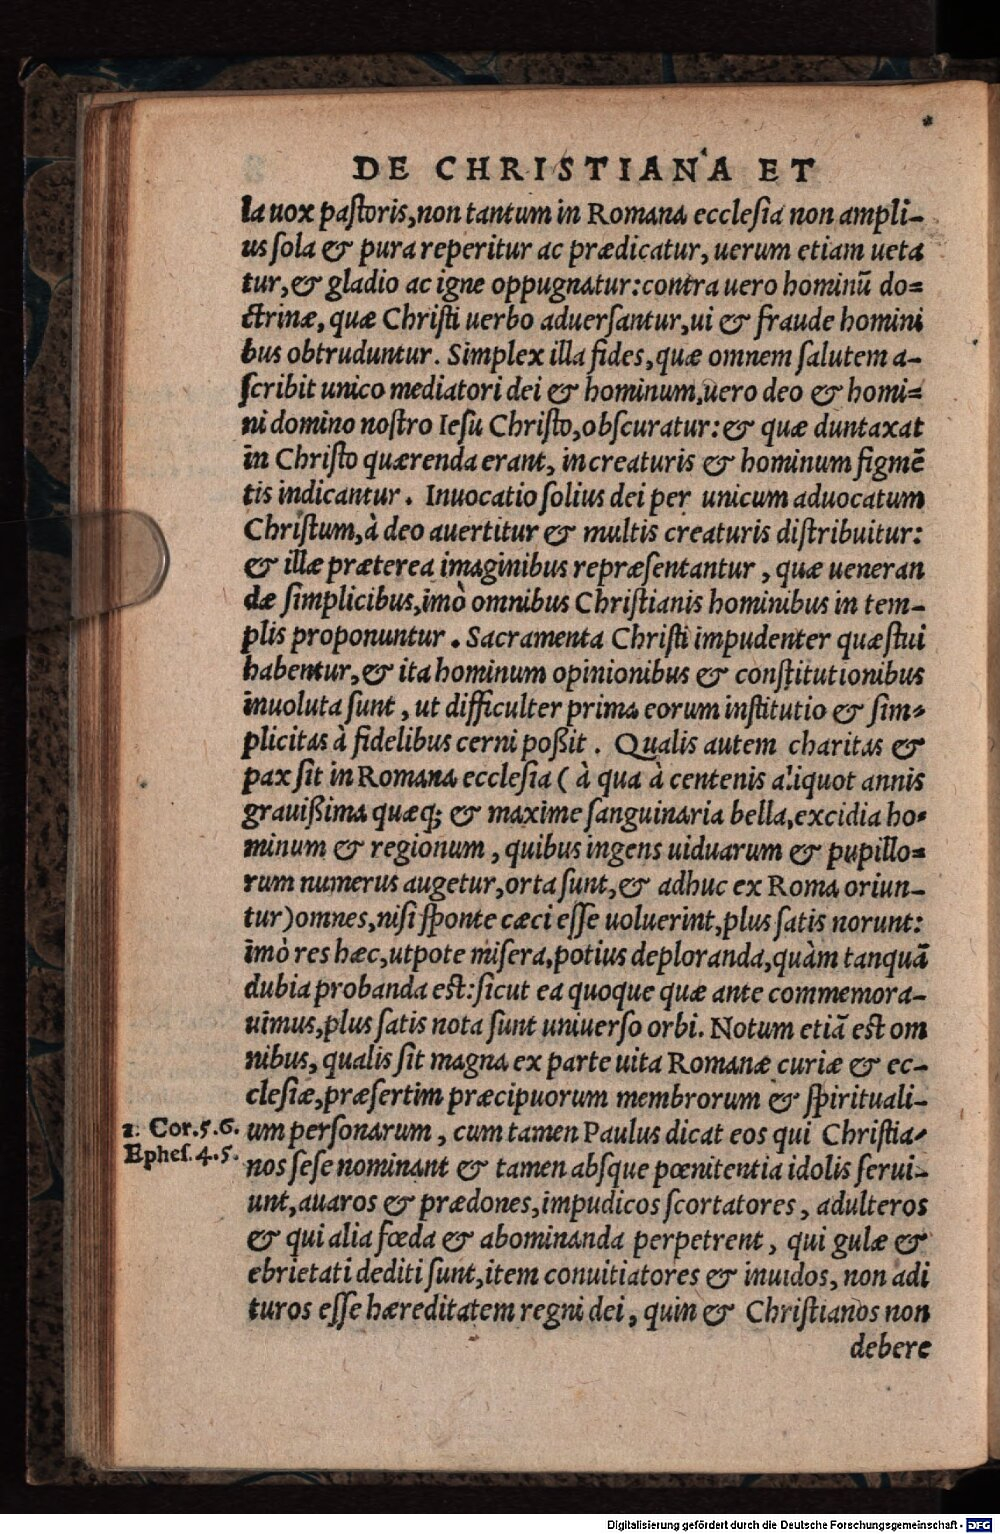 DE CHRISTIANA ET
la uox paſtoris, non tantum in Romana eccleſia non ampli-
us ſola & pura reperitur ac prædicatur, uerum etiam ueta
tur, & gladio ac igne oppugnatur: contra uero hominū do=
ctrinæ, quæ Chriſti uerbo aduerſantur, ui & fraude homini
bus obtruduntur. Simplex illa fides, quæ omnem ſalutem a-
ſcribit unico mediatori dei & hominum, uero deo & homi=
ni domino noſtro Ieſu Chriſto, obſcuratur: & quæ duntaxat
in Chriſto quærenda erant, in creaturis & hominum figmē
tis indicantur. Inuocatio ſolius dei per unicum aduocatum
Chriſtum, à deo auertitur & multis creaturis diſtribuitur:
& illæ præterea imaginibus repræſentantur, quæ ueneran
dæ ſimplicibus, imò omnibus Chriſtianis hominibus in tem-
plis proponuntur. Sacramenta Chriſti impudenter quæſtui
habentur, & ita hominum opinionibus & conſtitutionibus
inuoluta ſunt, ut difficulter prima eorum inſtitutio & ſim-
plicitas à fidelibus cerni poßit. Qualis autem charitas &
pax ſit in Romana eccleſia (à qua à centenis aliquot annis
grauißima quæq; & maxime ſanguinaria bella, excidia ho-
minum & regionum, quibus ingens uiduarum & pupillo=
rum numerus augetur, orta ſunt, & adhuc ex Roma oriun-
tur) omnes, niſi ſponte cæci eſſe uoluerint, plus ſatis norunt:
imò res hæc, utpote miſera, potius deploranda, quàm tanquā
dubia probanda est: ſicut ea quoque quæ ante commemora-
uimus, plus ſatis nota ſunt uniuerſo orbi. Notum etiā est om
nibus, qualis ſit magna ex parte uita Romanæ curiæ & ec-
cleſiæ, præſertim præcipuorum membrorum & ſpirituali-
1. Cor. 5. 6.
Epheſ. 4. 5.
um perſonarum, cum tamen Paulus dicat eos qui Chriſtia-
nos ſeſe nominant & tamen abſque pœnitentia idolis ſerui-
unt, auaros & prædones, impudicos ſcortatores, adulteros
& qui alia fœda & abominanda perpetrent, qui gulæ &
ebrietati dediti ſunt, item conuitiatores & inuidos, non adi
turos eſſe hæreditatem regni dei, quin & Chriſtianos non
debere
Digitalisierung gefördert durch die Deutsche Forschungsgemeinschaft - DFG